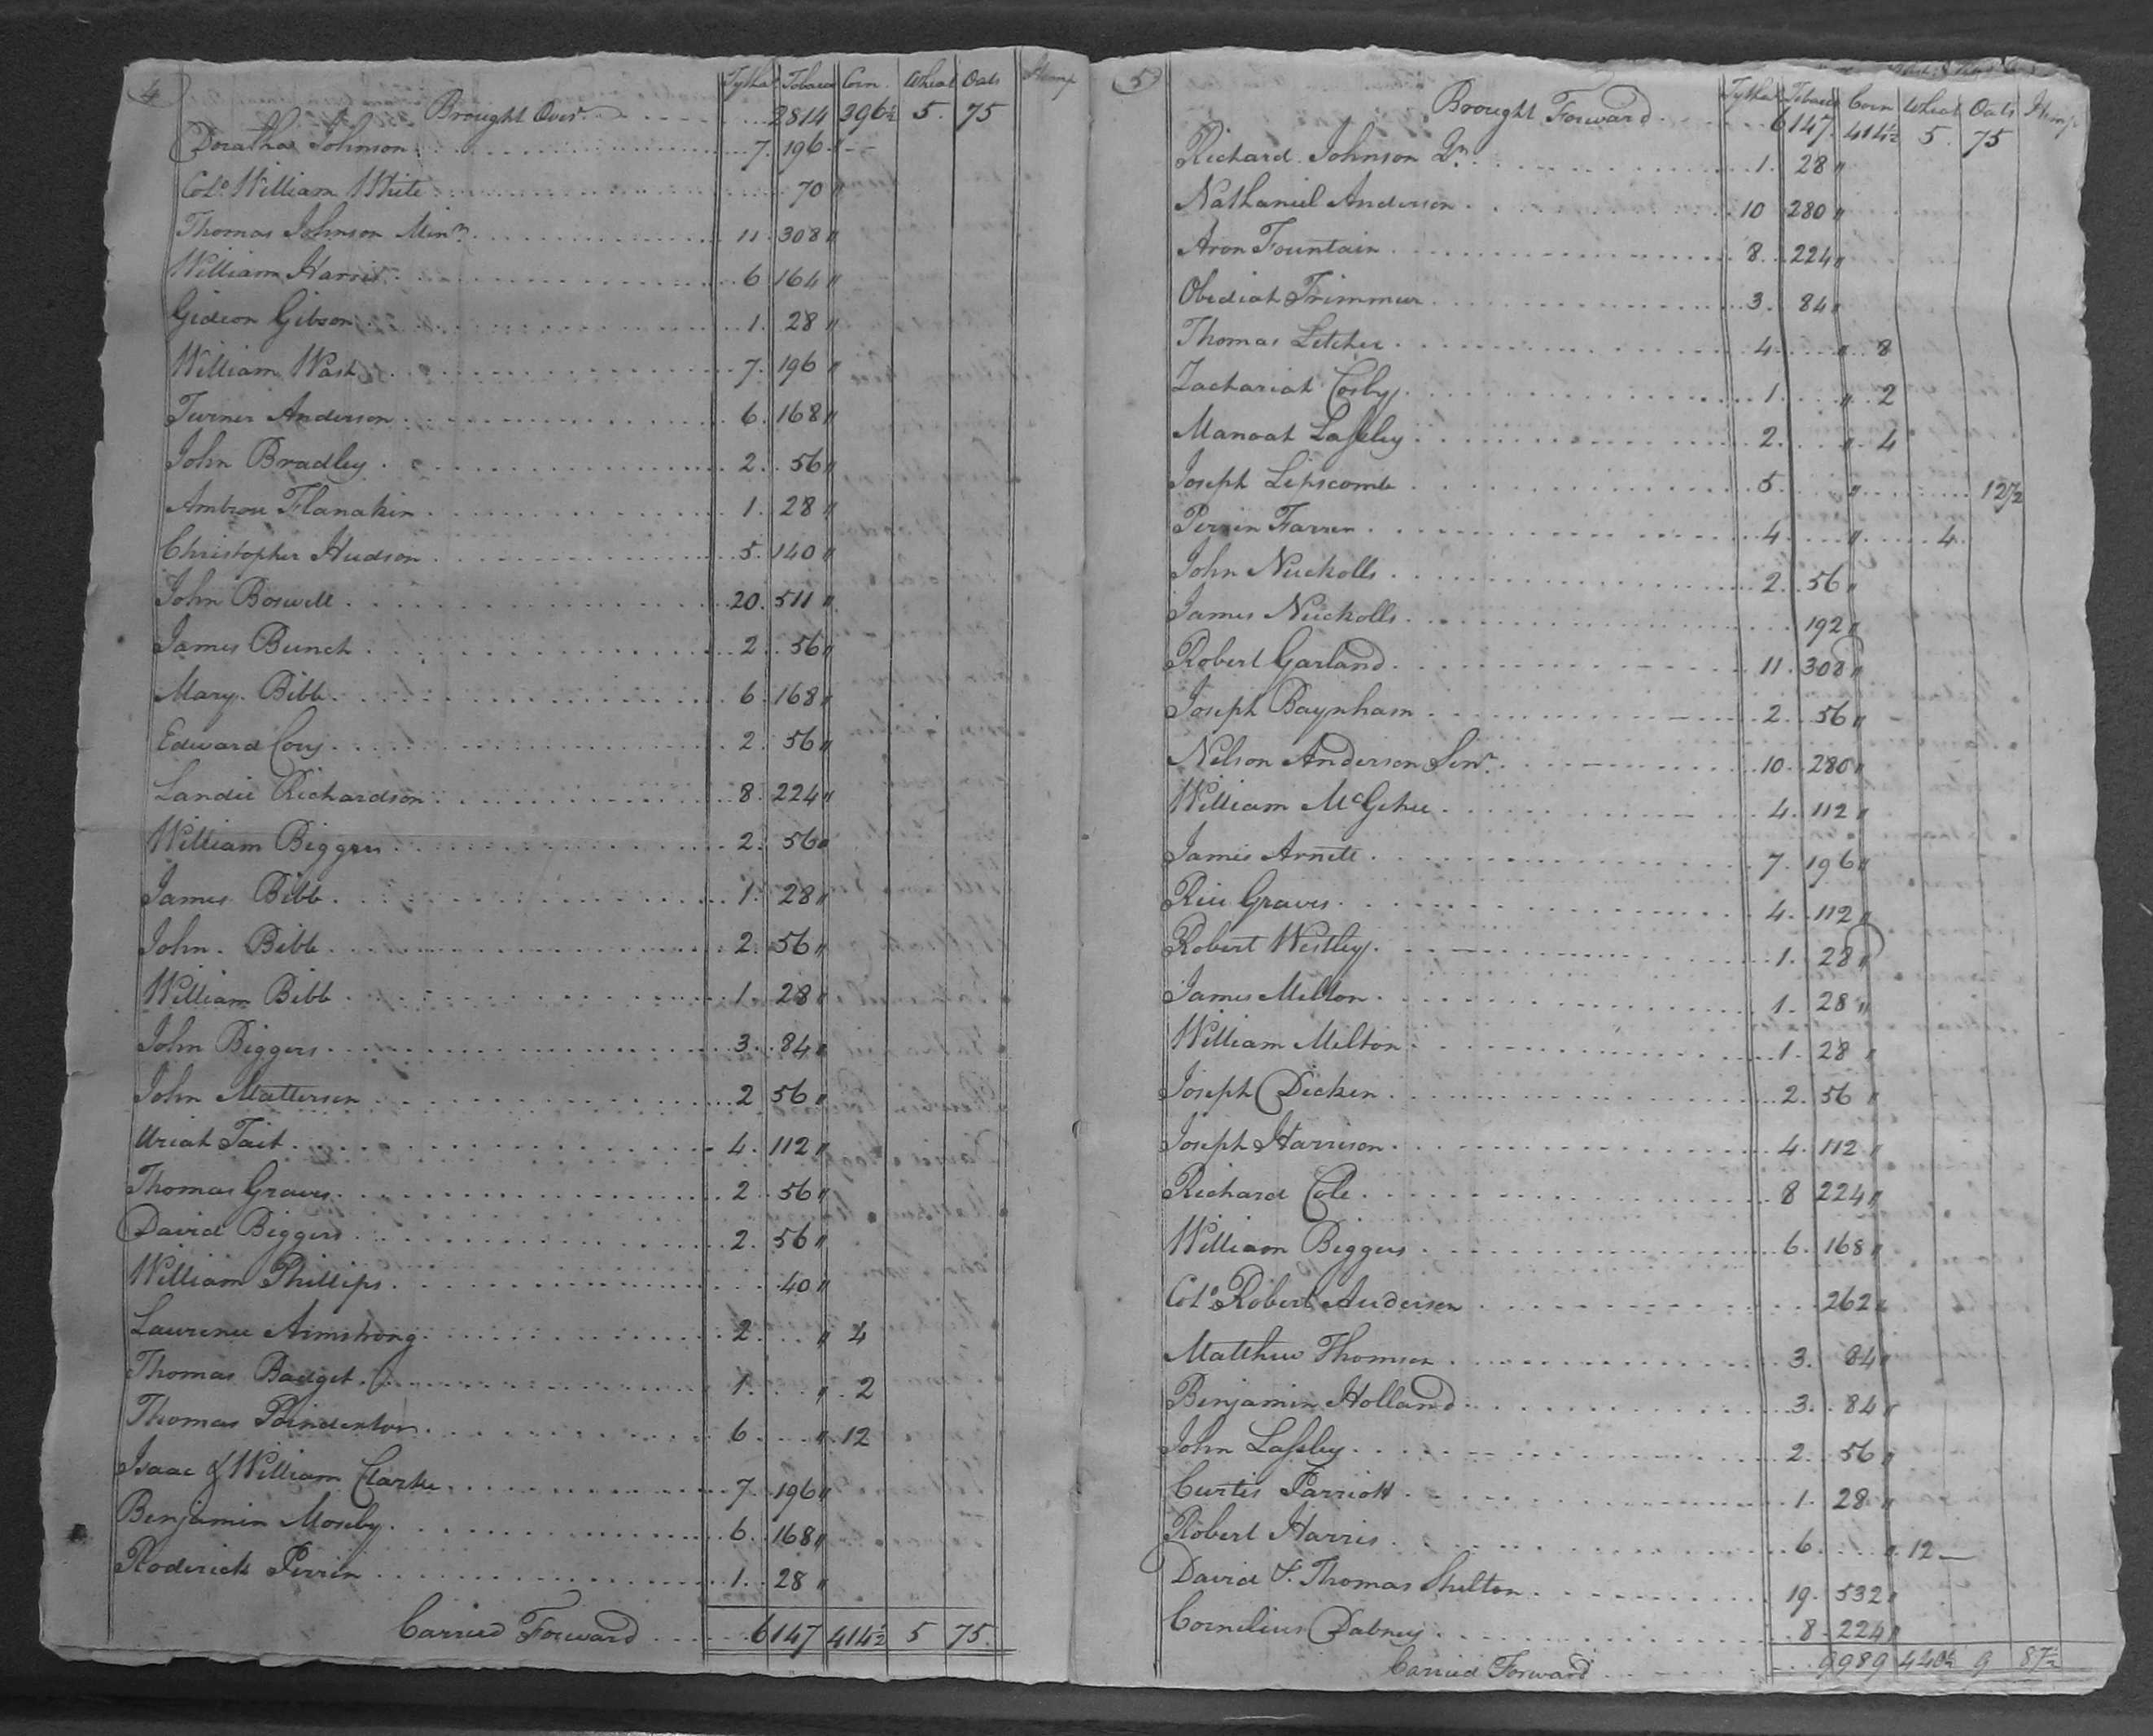 4 Tythas Tobacco Corn Wheat Oats Hemp
Brought Over 2814 396½ 5 75
Doratha Johnson 7 196 "
Colo. William White 70 "
Thomas Johnson Minr. 11 308 "
William Harris 6 164 "
Gideon Gibson 1 28 "
William Wash 7 196 "
Turner Anderson 6 168 "
John Bradley 2 56 "
Ambrose Flanakin 1 28 "
Christopher Hudson 5 140 "
John Boswell 20 511 "
James Bunch 2 56 "
Mary Bibb 6 168 "
Edward Cory 2 56 "
Landie Richardson 8 224 "
William Biggers 2 56 "
James Bibb 1 28 "
John Bibb 2 56 "
William Bibb 1 28 "
John Biggers 3 84 "
John Matterson 2 56 "
Uriah Tait 4 112 "
Thomas Graves 2 56 "
David Biggers 2 56 "
William Phillips 40 "
Laurence Armstrong 2 " 4
Thomas Badget 1 " 2
Thomas Poindexter 6 " 12
Isaac & William Clarke 7 196 "
Benjamin Moseby 6 168 "
Roderick Perrin 1 28 "
Carried Forward 6147 414½ 5 75
5 Tythas Tobacco Corn Wheat Oats Hemp
Brought Forward 6147 414½ 5 75
Richard Johnson Jnr. 1 28 "
Nathaniel Anderson 10 280 "
Aron Fountain 8 224 "
Obediah Trimmer 3 84 "
Thomas Letcher 4 " 8
Zachariah Cosby 1 " 2
Manoah Lasley 2 " 4
Joseph Lipscomb 5 " 12½
Perrin Farrer 4 " 4
John Nuckolls 2 56 "
James Nuckolls 192 "
Robert Garland 11 308 "
Joseph Baynham 2 56 "
Nelson Anderson Senr. 10 280 "
William McGehee 4 112 "
James Arnett 7 196 "
Rice Graves 4 112 "
Robert Westley 1 28 "
James Melton 1 28 "
William Melton 1 28 "
Joseph Dicken 2 56 "
Joseph Harrison 4 112 "
Richard Cole 8 224 "
William Biggers 6 168 "
Colo. Robert Anderson 262 "
Matthew Thomson 3 84 "
Benjamin Holland 3 84 "
John Lasley 2 56 "
Curtis Parriott 1 28 "
Robert Harris 6 " 12
David & Thomas Shelton 19 532 "
Cornelius Dabney 8 224 "
Carried Forward 9989 440½ 9 87½